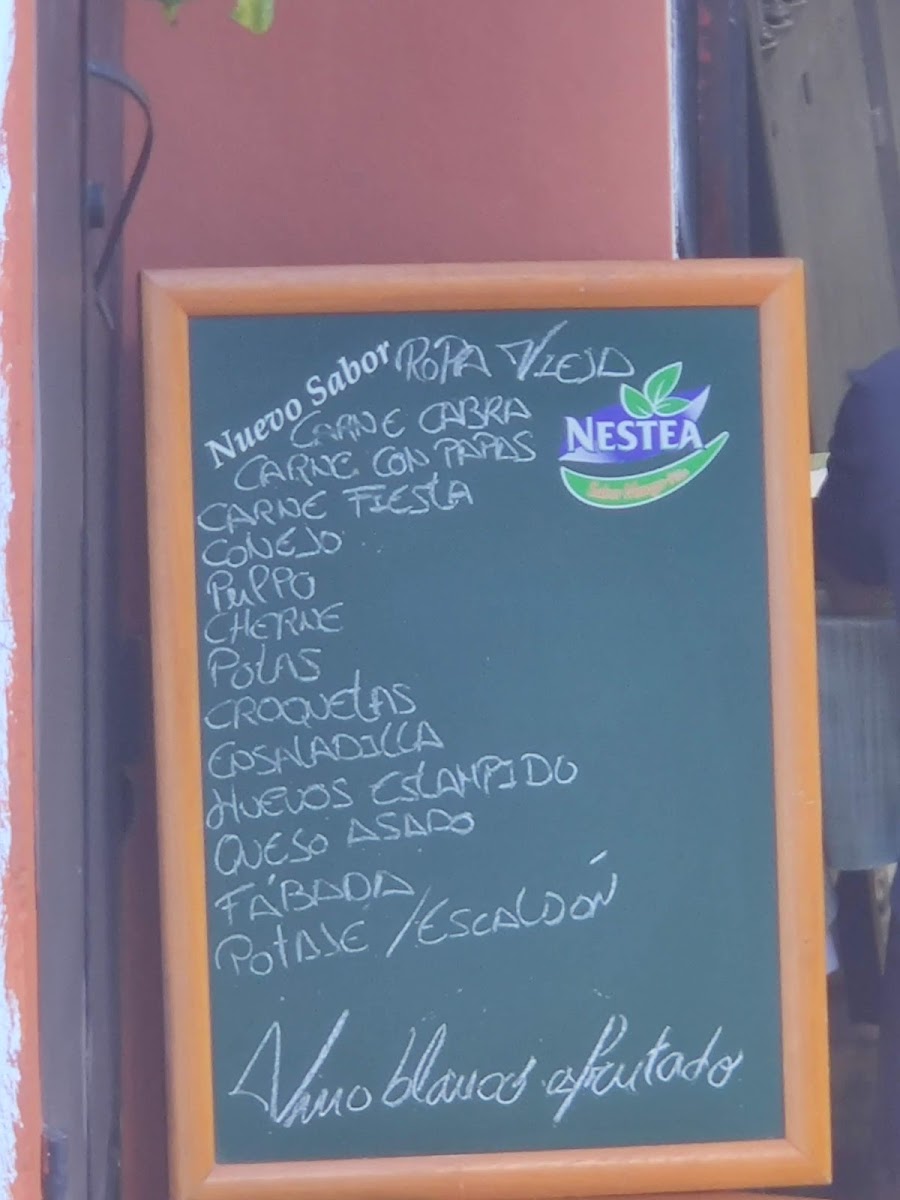 Nuevo Sabor
ROPA VIEJA
NESTEA
CARNE CABRA
CARNE CON PAPAS
CARNE FIESTA
CONEJO
PULPO
CHERNE
POTAS
CROQUETAS
EOSALADILLA
HUEVOS ESTAMPIDO
QUESO ASADO
FÁBADA
POTAJE / ESCALDÓN
Vino blanco afrutado